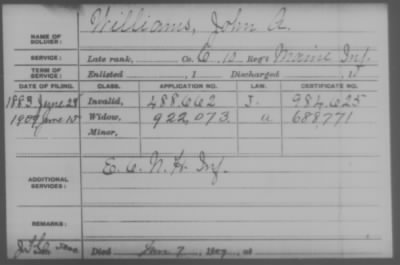 NAME OF SOLDIER: Williams, John A.
SERVICE: Late rank, Co. C 10 Reg't Maine Inf.
TERM OF SERVICE: Enlisted , 1 Discharged , 1
DATE OF FILING. CLASS. APPLICATION NO. LAW. CERTIFICATE NO.
1883 June 29 Invalid, 488.662 J. 984.625
1909 June 15 Widow, 922,073 a 688,771
Minor,
ADDITIONAL SERVICES: E. 6 N.H. Inf.
REMARKS:
Died Jan 7, 1909, at